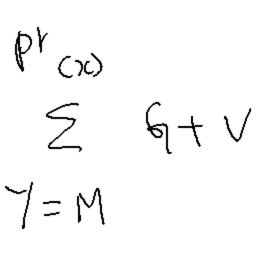 pr(x)
Σ G + V
Y = M